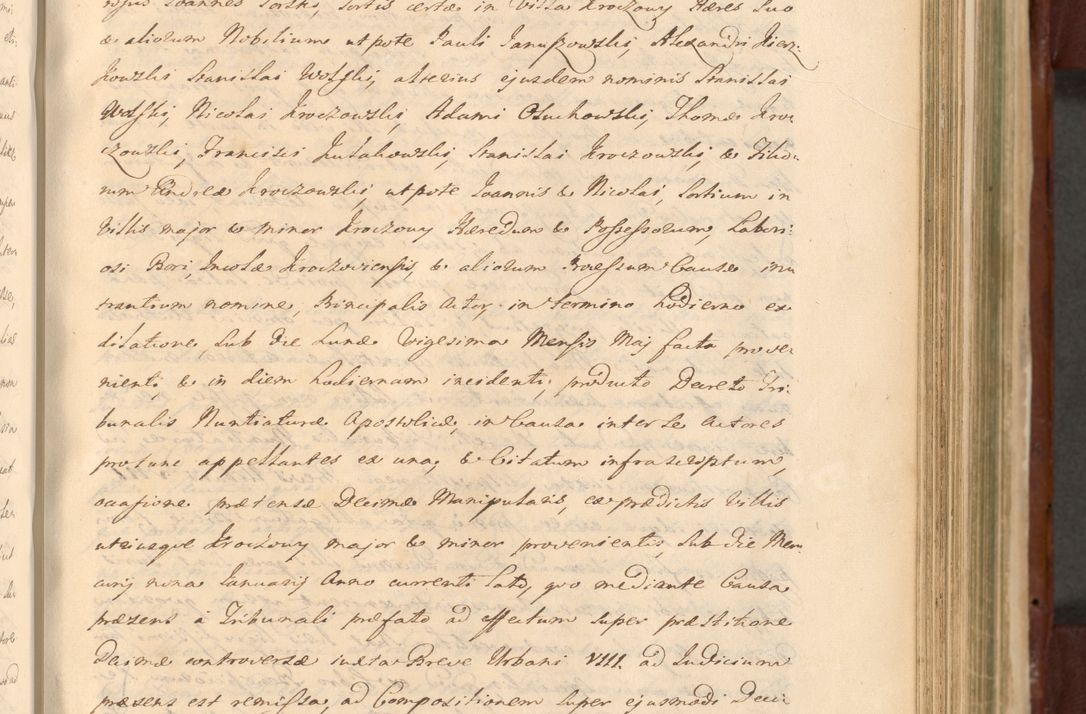 Joannes Gorski, Sortis certæ in Villa Kroczowy Hæres Suo
& aliorum Nobilium utpote Pauli Januszowskij, Alexandri Kierz-
kowski Stanislai Wolskij, alterius ejusdem nominis Stanislai
Wolskij, Nicolai Kroczowskij, Adami Osuchowskij, Thomæ Kro-
czowskij, Francisci Kułakowskij, Stanislai Kroczowskij, & Filio-
rum Andreæ Kroczowskij, utpote Joannis & Nicolai, Sortium in
Villis major & minor Kroczowy Hæredum & Possessorum, Labori-
osi Bori, Incolæ Kroczoviensis, & aliorum Præssum Causæ in
trantium nomine, Principalis Actor, in termino hodierno ex
dilatione, sub die Lunæ Vigesima Mensis Maij facta prove-
nienti & in diem hodiernam incidenti, producto Decreto Tri-
bunalis Nuntiaturæ Apostolicæ, in Causa inter se Actores
protunc appellantes ex una, & Citatum infrascriptum,
occasione prætensæ Decimæ Manipularis, ex prædictis Villis
utriusque Kroczowy major & minor provenientis, sub die Mer-
curij nona Januarij Anno currenti lato, quo mediante Causa
præsens à Tribunali præfato ad effectum super præstitione
Decimæ controversæ iuxta Breve Urbani VIII. ad Iudicium
præsens est remissa, ad Compositionem super ejusmodi Deci